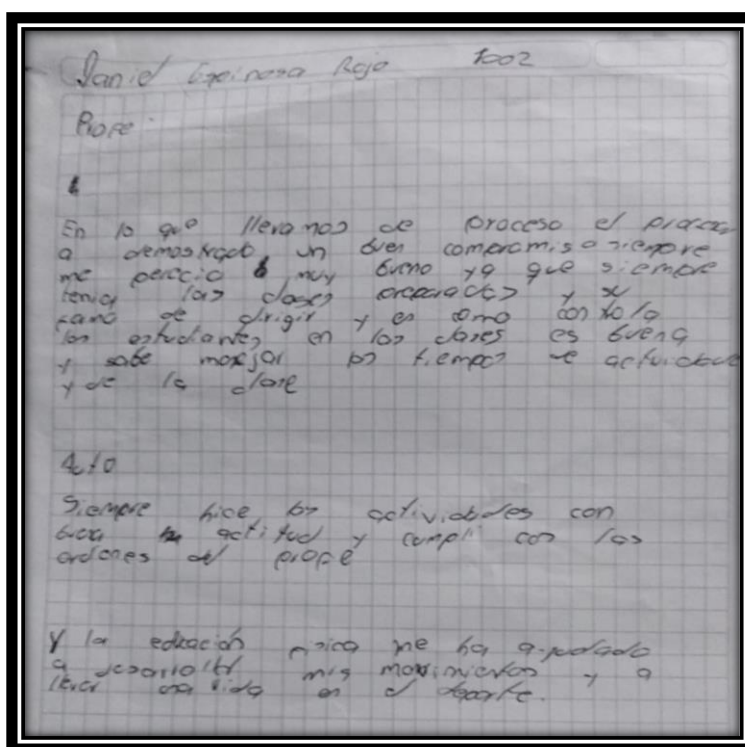 Daniel Espinosa Rojo 1002
Profe
En lo que llevamos de proceso el
a demostrado un buen compromiso siempre
me perecio muy bueno ya que siempre
tenia las clases preparadas y su
de dirigir y es como controla
los estudiantes en los clases es buena
y sabe manejar los tiempos de actividade
y de la clase
Auto
Siempre hice las actividades con
buena actitud y cumpli con las
ordenes del profe
Y la educación fisica me ha ayudado
a desarrollar mis movimientos y a
llevar una vida en el deporte.